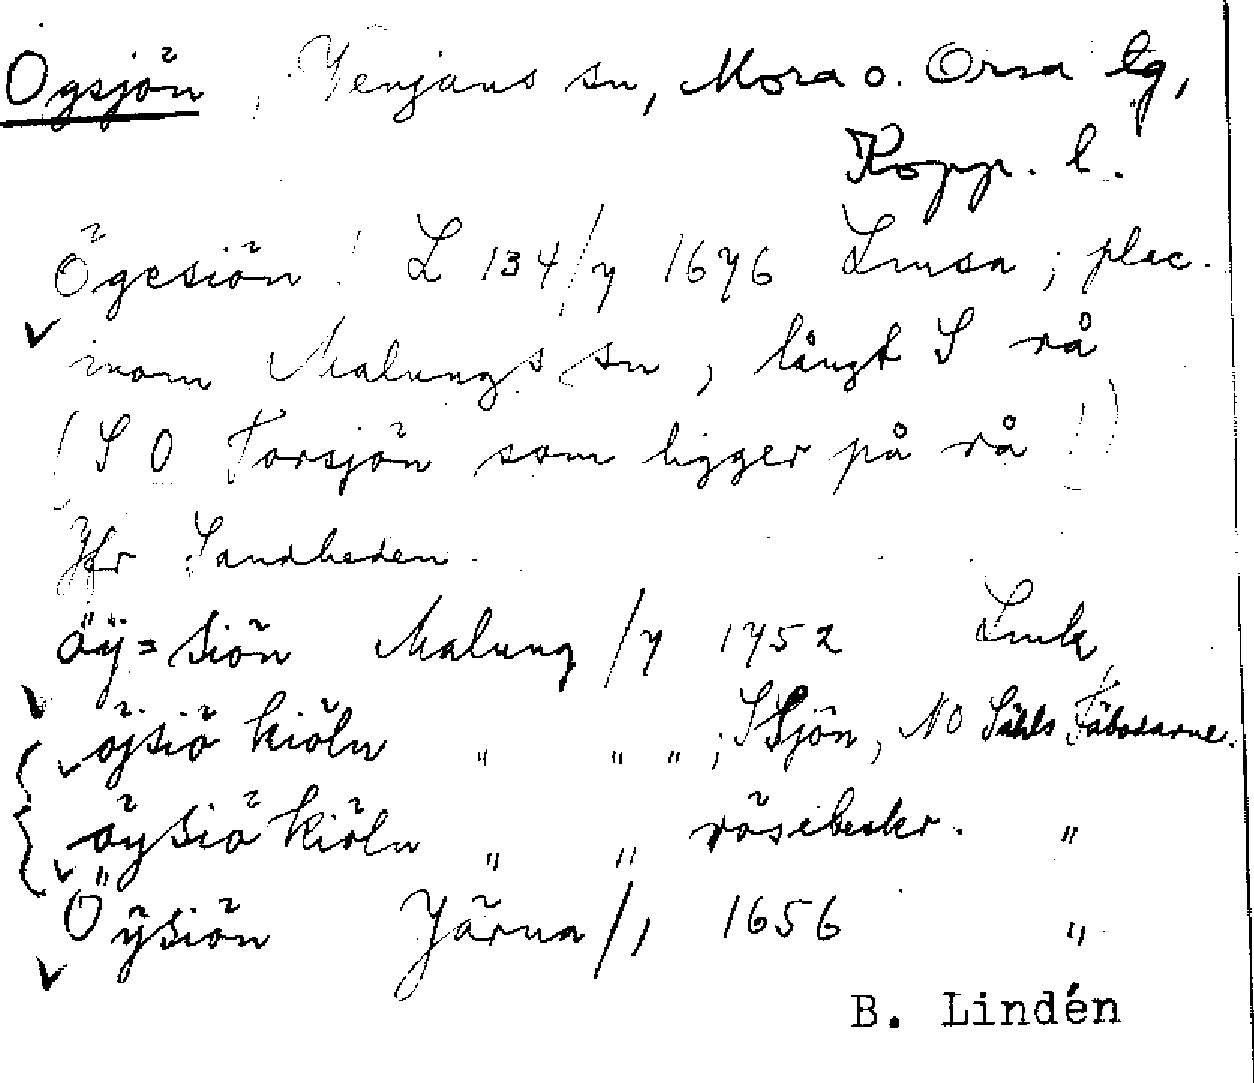 Ögsjön, Venjans sn, Mora o. Orsa tg,
Kopp. l.
Ögesiön! L 134/7 1676 Lmsa; plac.
inom Malungs sn, långt S rå
(SO Torsjön som ligger på rå!)
Jfr Sandheden.
öÿ=siön Malung/7 1752 Lmk
öjsiö kiöln " " "; S Sjön, NO Sähls Fäbodarne.
öysiö kiöln " " rösebeskr. "
Öÿsiön Järna/1 1656 "
B. Lindén